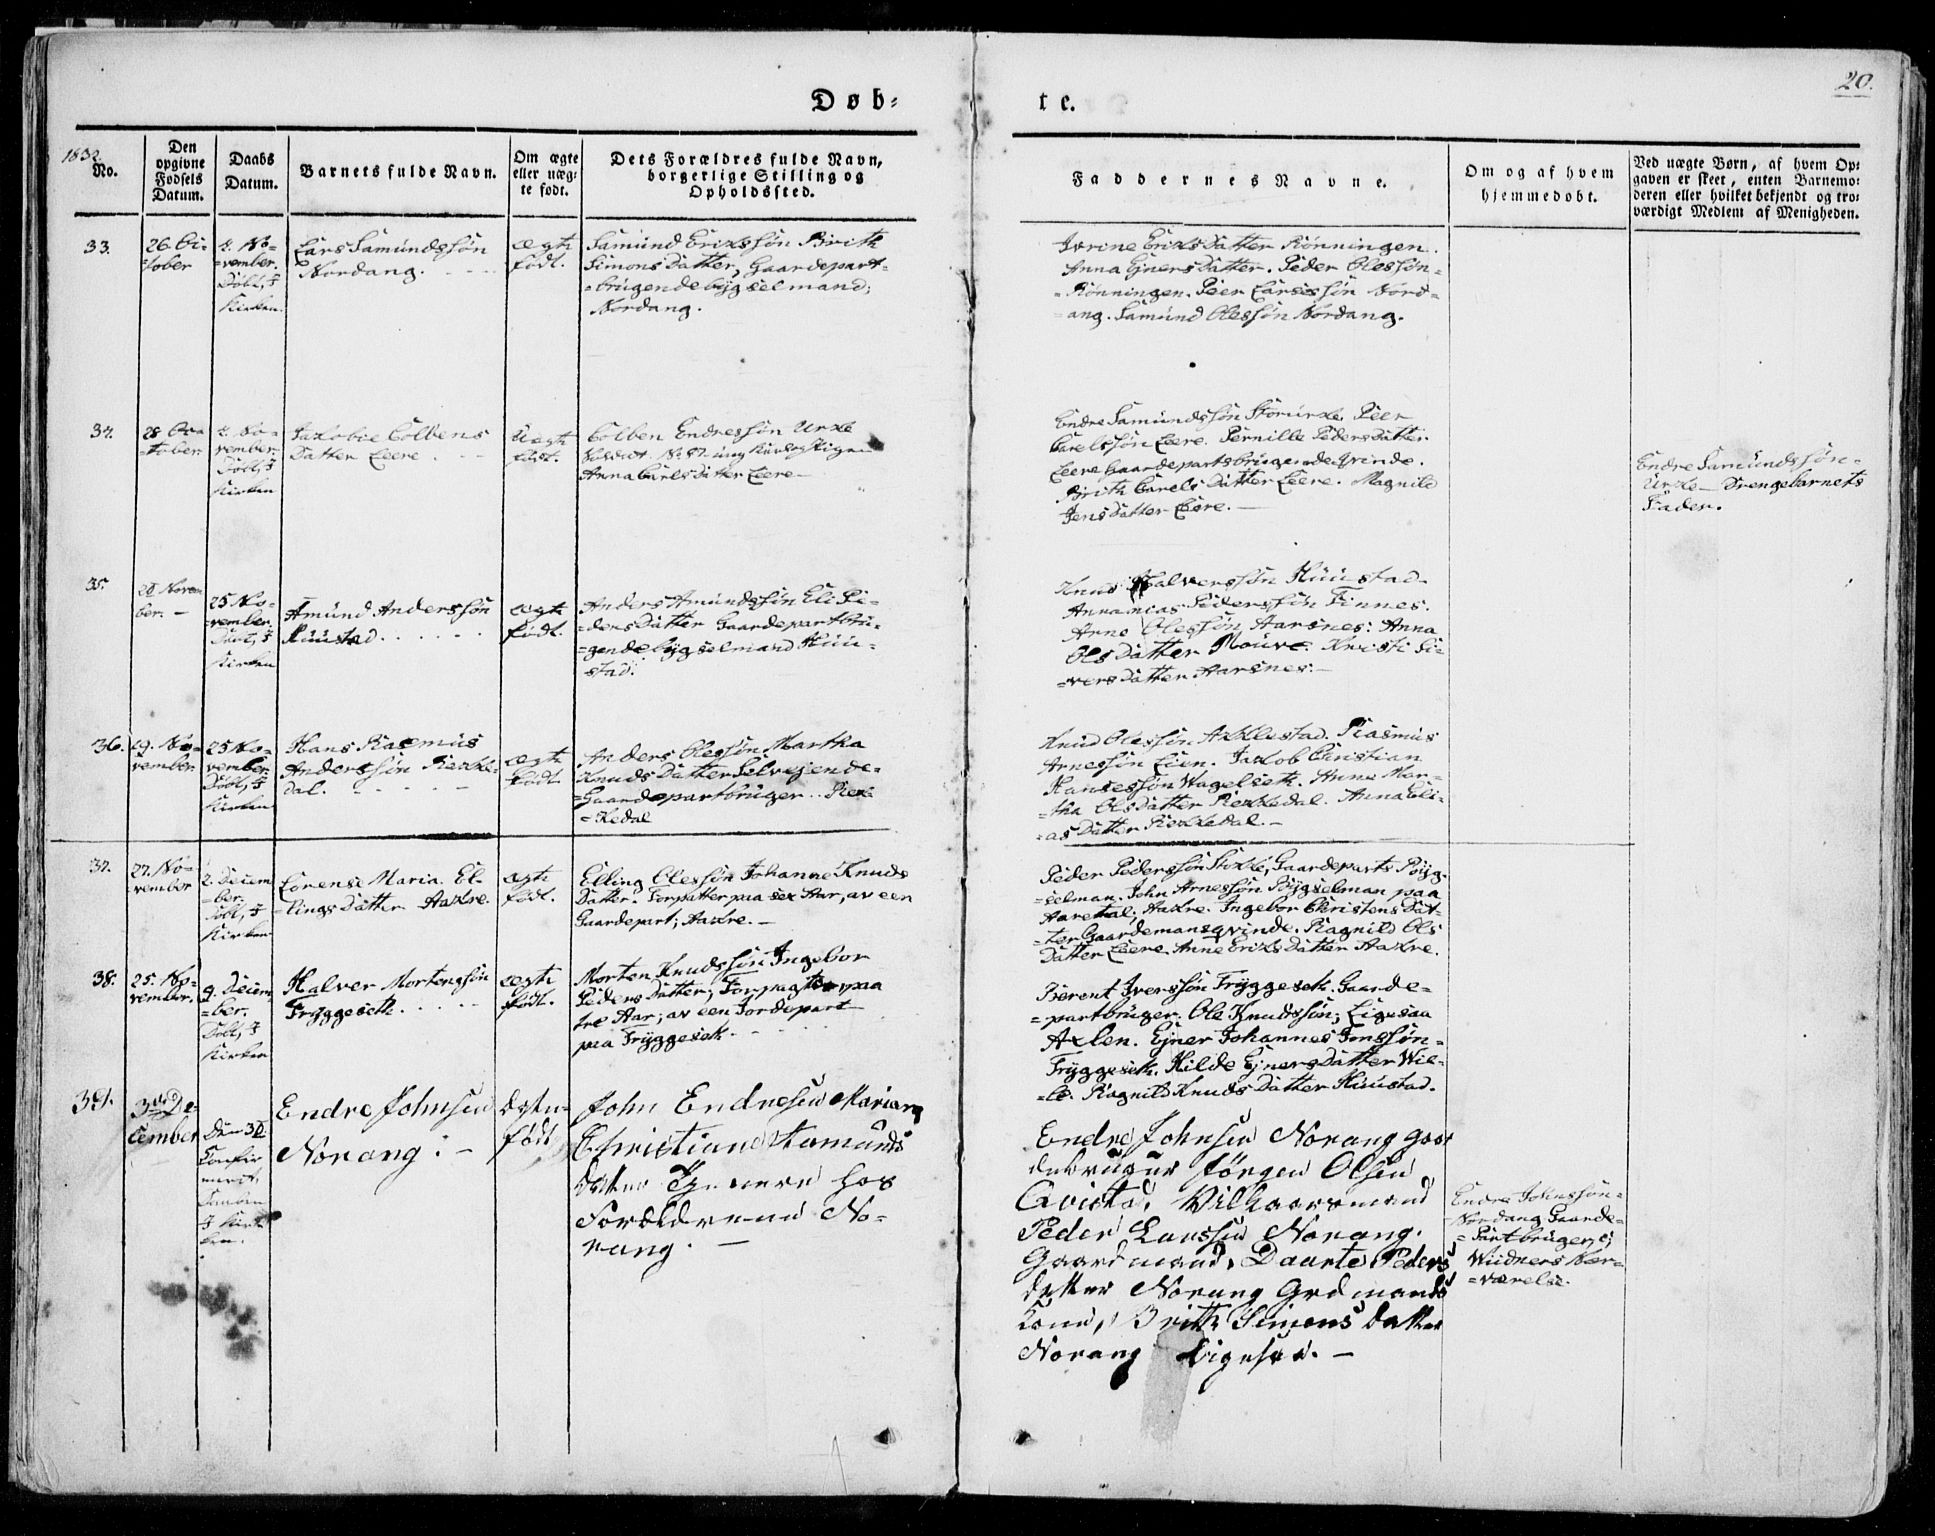 20.
Døb-
te.
1832.
No.
Den
opgivne
Fødsels
Datum.
Daabs
Datum.
Barnets fulde Navn.
Om ægte
eller uæg-
te født.
Dets Forældres fulde Navn,
borgerlige Stilling og
Opholdssted.
Faddernes Navne.
Om og af hvem
hjemmedøbt.
Ved uægte Børn, af hvem Op-
gaven er skeet, enten Barnemo-
deren eller hvilket bekjendt og tro-
værdigt Medlem af Menigheden.
33.
26. Oc-
=tober
4. No=
=vember.
Döbt, I
Kirken.
Lars Samundssøn
Nordang.
ægte
født.
Samund Erikssøn Brith
Simons Datter, Gaardepart=
=brugende bygselmand;
Nordang.
Ivrine Eriks Datter Rönningen.
Anna Ejners Datter. Peder Olessøn=
=Rönningen. Peer Larsessøn Nord=
=ang. Samund Olessøn Nordang.
34.
28 Oc=
=tober.
4. No=
vember.
Döbt, I
Kirken
Jakobie Colbens
Datter Leere
Uægte
født.
Colben Endressøn Urke
Soldat No. 87
Anna Carls Datter Leere
Endre Samundssøn Storurke, Peer
Carelssøn Leere. Pernille Peders Datter
Leere Gaardepartsbrugendeqvinde.
Brith Carels Datter Leere. Magnild
Jens Datter Leere.
Endre Samundssøn=
Urke Drengebarnets
Fader.
35.
20 Novem
ber.
25 No=
=vember.
Döbt, I
Kirken
Amund Anderssøn
Huustad
ægte
født.
Anders Amundssøn Eli Pe=
=ders Datter Gaardepartbru=
=gende bygselmand Huu=
stad.
Knud Halverssøn Huustad
Annanias Pederssøn Finnes.
Arne Olessøn Aarsnes: Anna
Ols Datter Mouve. Kristi Si=
=vers Datter Aarsnes:
36.
19. No=
vember.
25 No=
vember.
Döbt, I
Kirken
Hans Rasmus
Anderssøn Rekke=
dal.
ægte
født.
Anders Olessøn Martha
Knuds Datter Selvejende=
=Gaardepartbruger. Rek=
=kedal
Knud Olessøn Aklestad. Rasmus
Arnessøn Lien. Jakob Christian
Hansessøn Wagelseth. Anne Mar=
=tha Ols Datter Rekkedal. Anna Eli=
=as Datter Rekkedal.
37.
27. No=
vember
2. Decem
=ber.
Döbt, I
Kirken
Lorense Maria El=
=lings Datter Aakre
ægte
født.
Elling Olessøn Johanne Knuds
Datter. Forpatter paa sex Aar, av een
Gaardepart; Aakre.
Peder Pederssøn Stokke, Gaardeparts Bÿg=
=selman. John Arnessøn Bÿgselman paa
Aaretal; Aakre. Ingebor Christens Dat=
=ter Gaardemansqvinde. Ragnild Ols
Datter Leere Anne Eriks Datter Aakre.
38.
25. No=
vember.
9. Decem
=ber.
Döbt, I
Kirken
Halver Mortenssøn
Fryggeseth.
ægte
født.
Morten Knudssøn Ingebor
Peders Datter; Forpagter paa
tre Aar; av een Jordepart
paa Trÿggeseth.
Berent Iverssøn Trÿggeseth. Gaarde=
=partbruger. Ole Knudssøn; Ligesaa
Aklen. Ejner Johannes Jonssøn=
Trÿggeseth. Hilde Ejners Datter Wil=
=le. Ragnild Knuds Datter Huustad.
39.
3die De=
cember
Den 30
Confir
meret,
Samen
I Kirk
ken.
Endre Johnsen
Norang:
ægte
født
John Endresen Mariane
Christiane Aamunds
datter Tjenere hos
Forældrene No=
rang.
Endre Johnsen Norang Gaar
debruger Jörgen Olsen
Qvistad, Vilkaarsmand
Peder Larssen Norang,
Gaardmand, Daarte Peders
datter Norang Grdmands
Kone, Brithe Simons datter
Norang Ligesaa.
Endre Johnssøn=
Nordang Gaarde=
=Partbruger, i
Widners Nær=
=værelse.